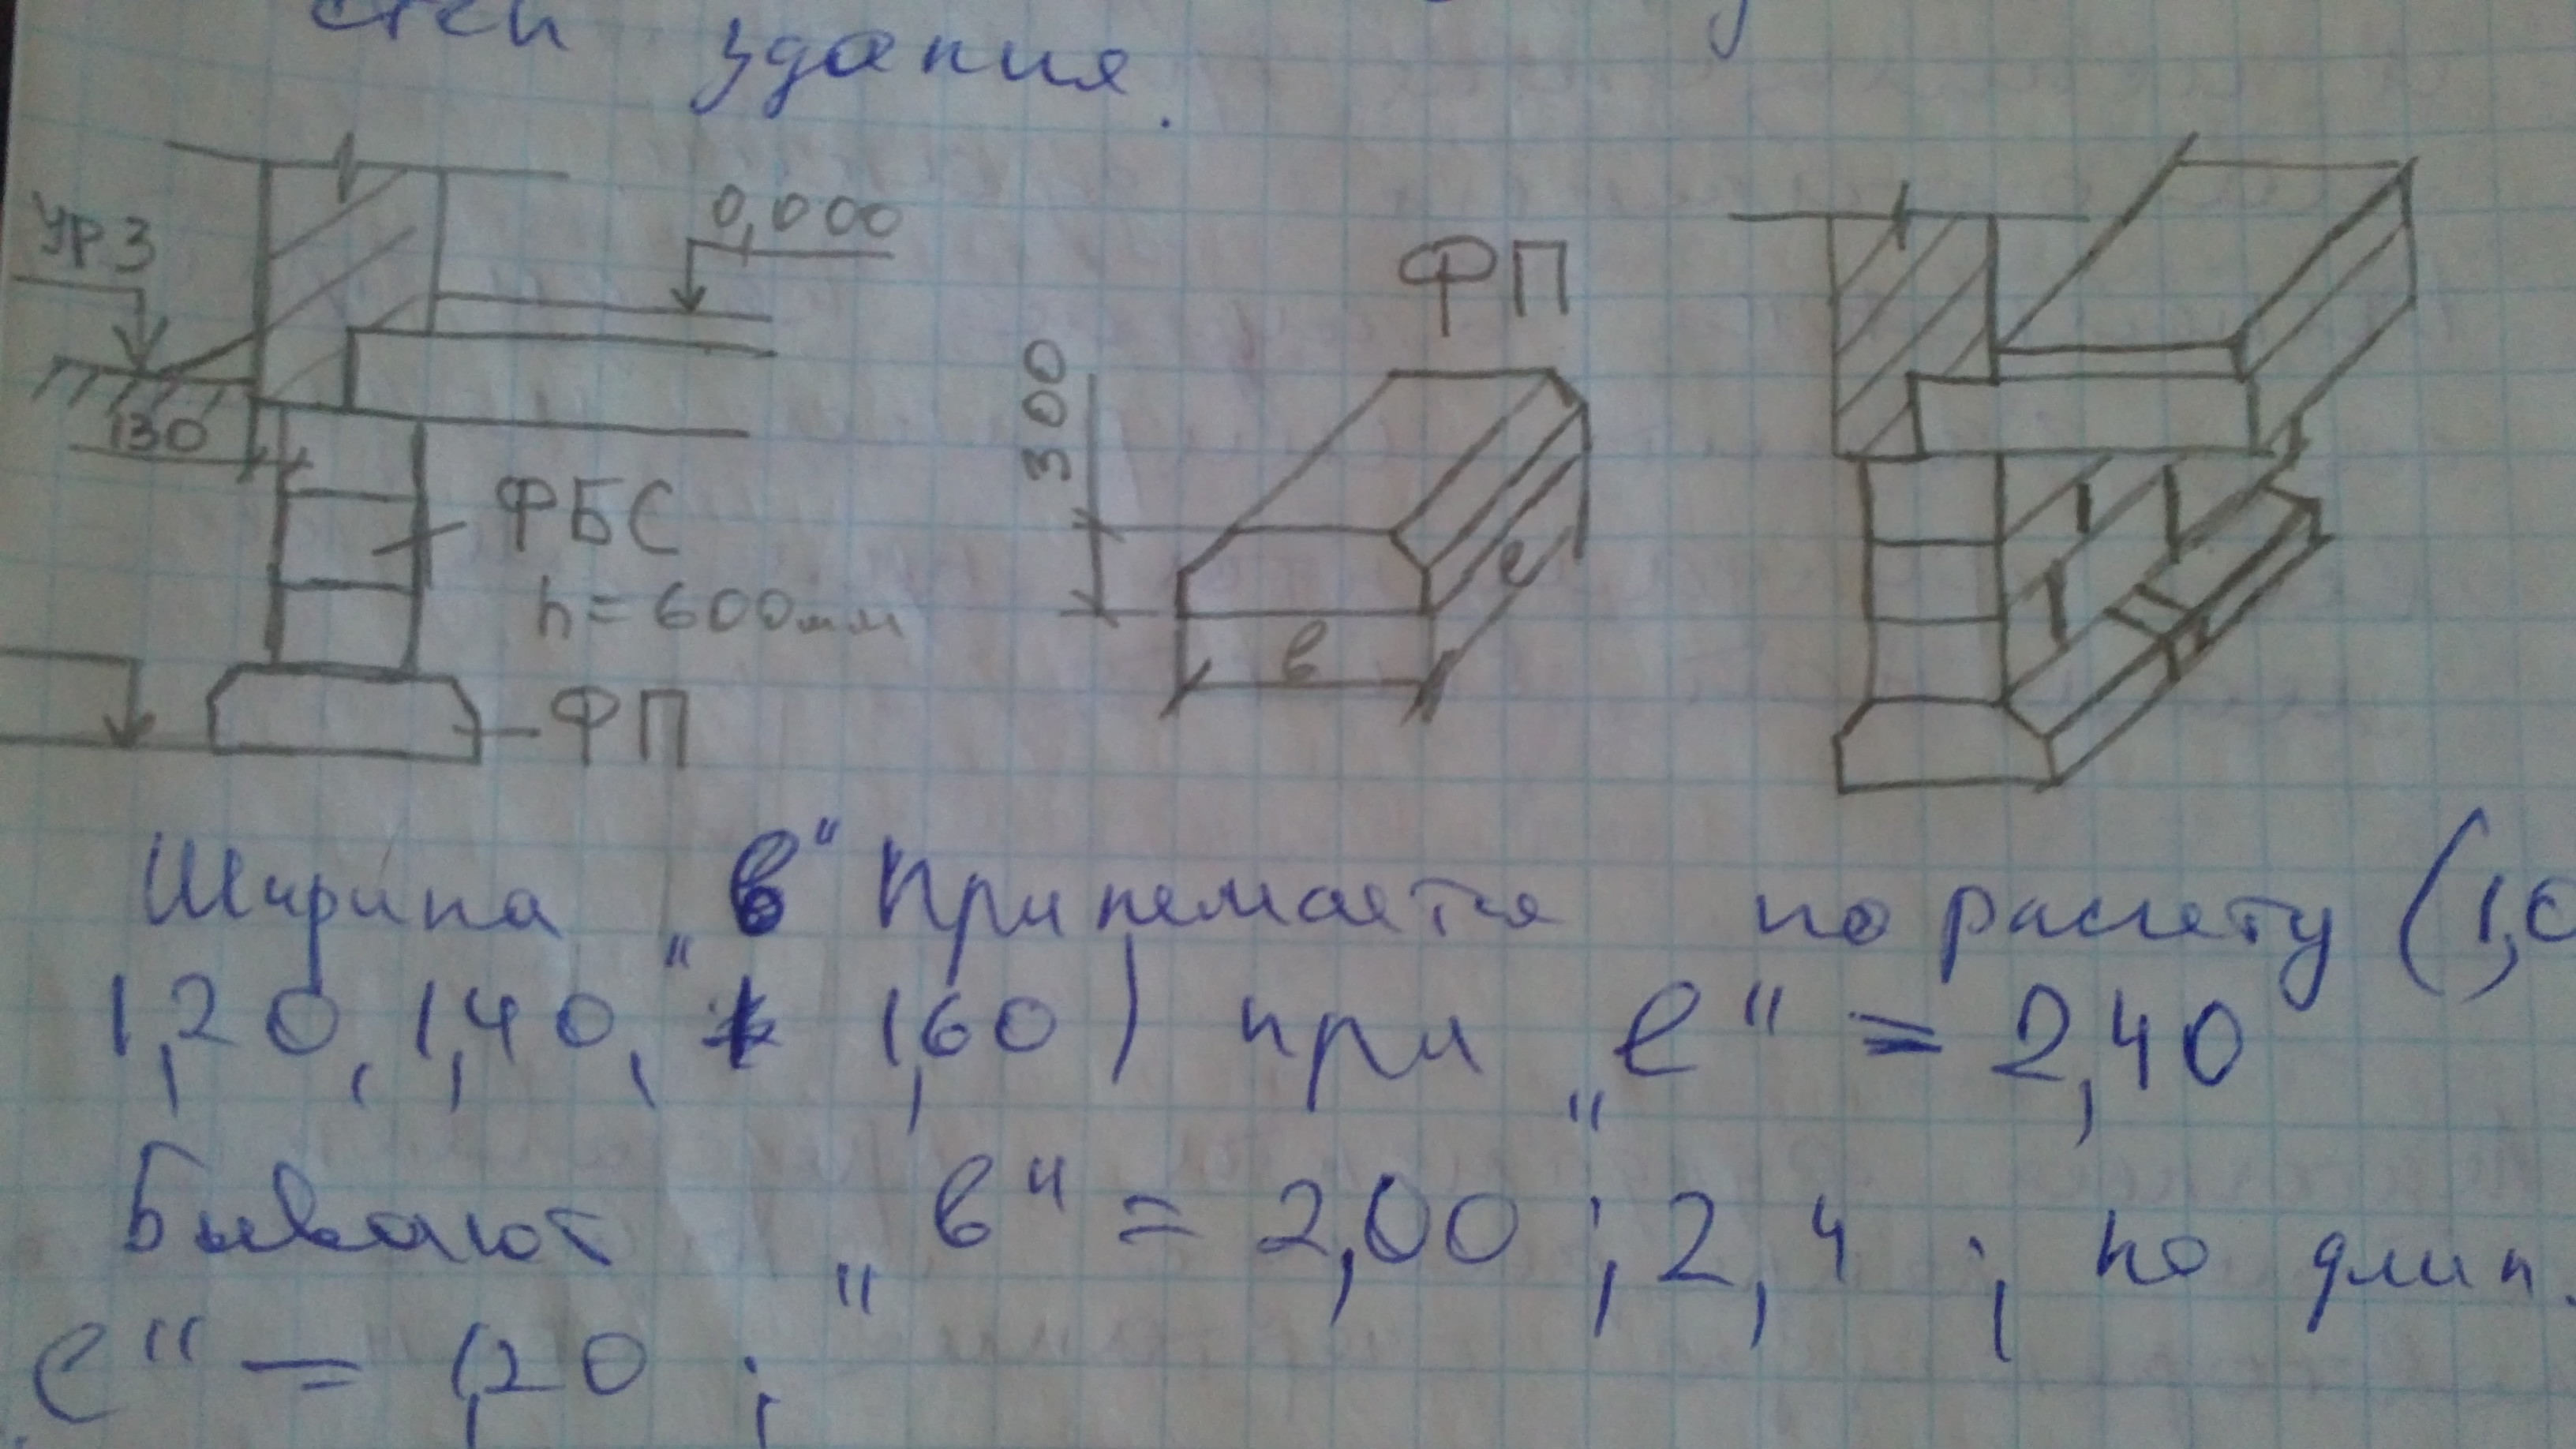 стен здания.
УРЗ
0,000
130
ФБС
h=600мм
ФП
ФП
300
в
е
Ширина „в“ принемается по расчету (1,0
1,20, 1,40, 1,60) при „е“ = 2,40
Бывают „в“ = 2,00; 2,4; по длин.
е“ = 1,20;